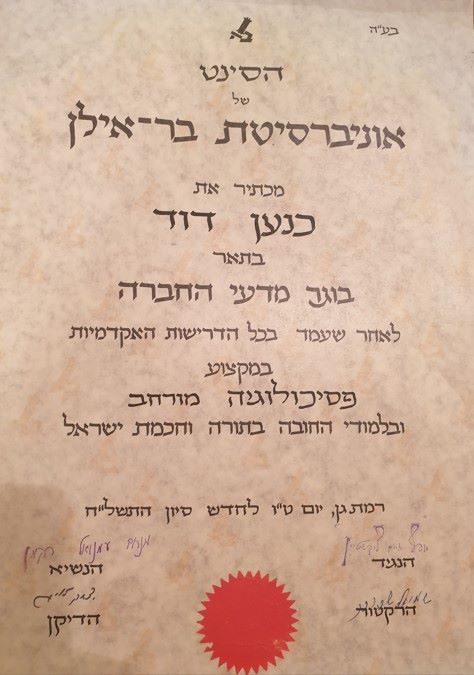 בע״ה
הסינט
של
אוניברסיטת בר־אילן
מכתיר את
כנען דוד
בתאר
בוגר מדעי החברה
לאחר שעמד בכל הדרישות האקדמיות
במקצוע
פסיכולוגיה מורחב
ובלמודי החובה בתורה וחכמת ישראל
רמת.גן, יום ט״ו לחדש סיון התשל״ח
מנחם עמנואל רקמן
הנשיא הנגיד
הדיקן הרקטור